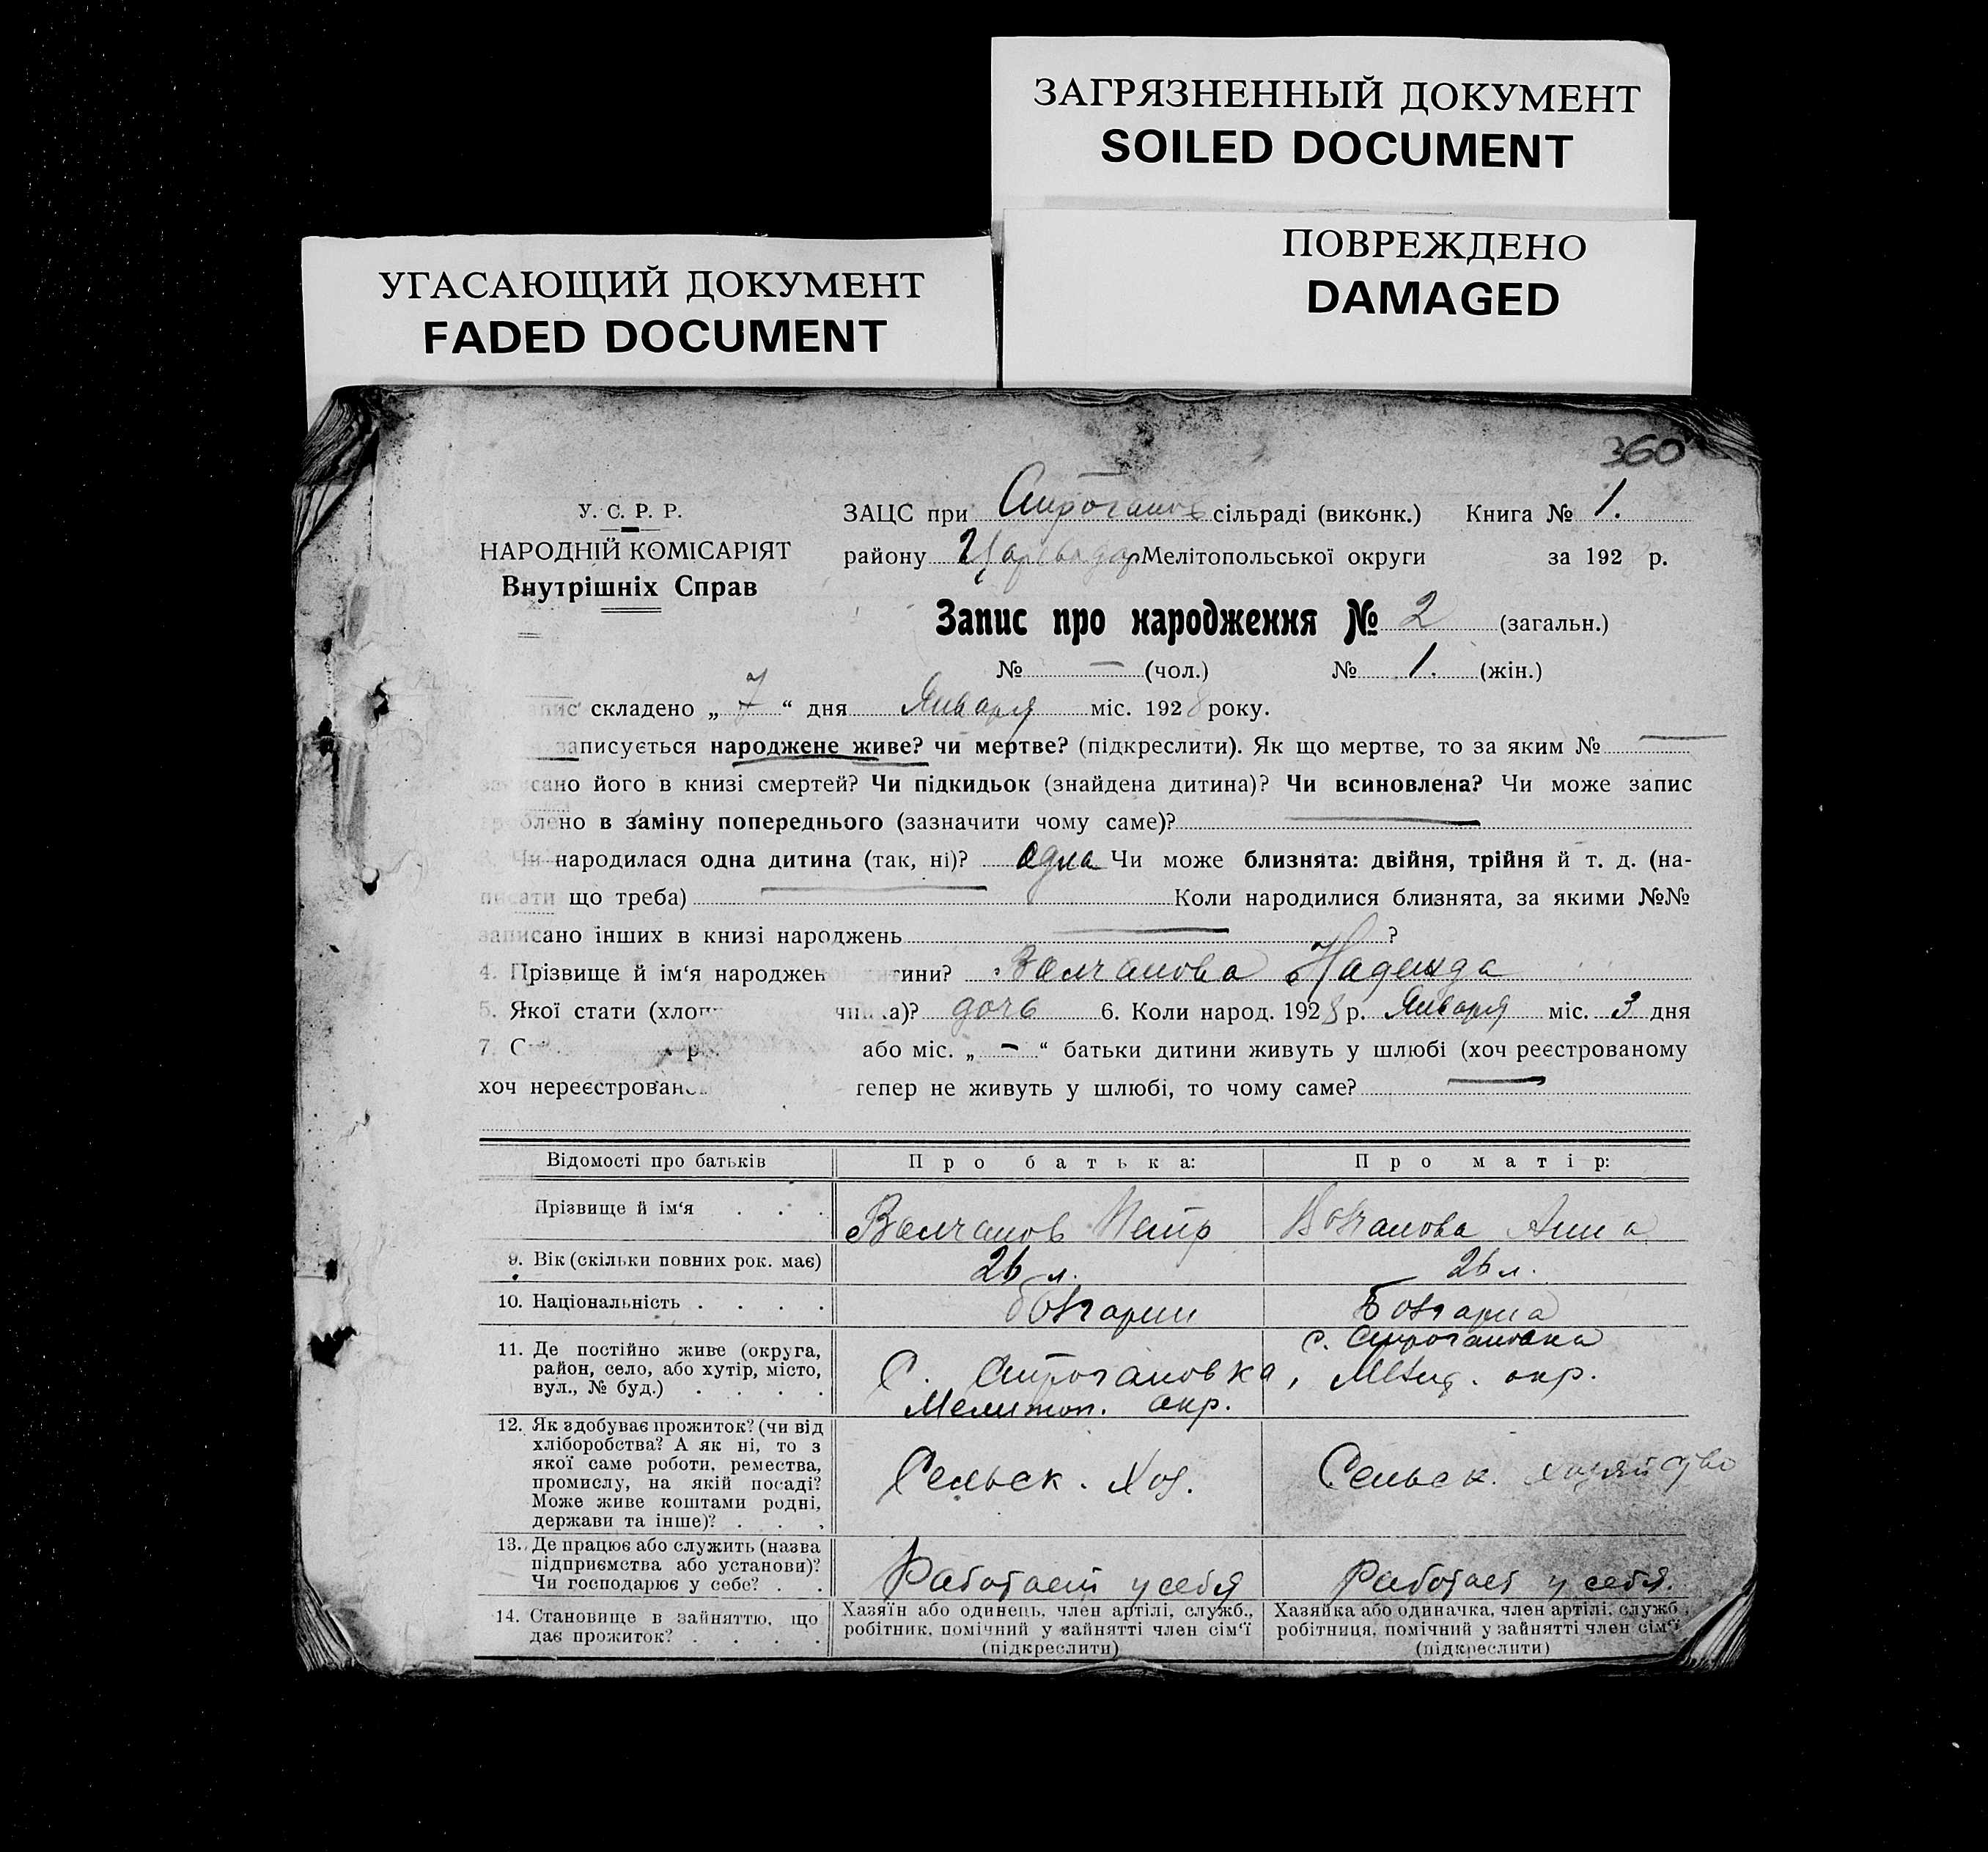 ЗАГРЯЗНЕННЫЙ ДОКУМЕНТ
SOILED DOCUMENT
ПОВРЕЖДЕНО
DAMAGED
УГАСАЮЩИЙ ДОКУМЕНТ
FADED DOCUMENT
360
У. С. Р. Р.
НАРОДНІЙ КОМІСАРІЯТ
Внутрішніх Справ
ЗАЦС при Строганов сільраді (виконк.) Книга № 1.
району Цареводар Мелітопольської округи за 192 р.
Запис про народження № 2 (загальн.)
№ — (чол.) № 1. (жін.)
запис складено „ 7 “ дня Января міс. 1928 року.
записується народжене живе? чи мертве? (підкреслити). Як що мертве, то за яким № —
записано його в книзі смертей? Чи підкидьок (знайдена дитина)? Чи всиновлена? Чи може запис
зроблено в заміну попереднього (зазначити чому саме)? —
3. Чи народилася одна дитина (так, ні)? одна Чи може близнята: двійня, трійня й т. д. (на-
писати що треба) — Коли народилися близнята, за якими №№
записано інших в книзі народжень — ?
4. Прізвище й ім‘я народженої дитини? Волчанова Надежда
5. Якої стати (хлоп чинка)? дочь 6. Коли народ. 1928 р. Января міс. 3 дня
7. С р або міс. „ — “ батьки дитини живуть у шлюбі (хоч реєстрованому
хоч нереєстрован тепер не живуть у шлюбі, то чому саме? —
Відомості про батьків Про батька: Про матір:
Прізвище й ім‘я . . . Волчанов Петр Волчанова Анна
9. Вік (скільки повних рок. має) 26 л. 26 л.
10. Національність . . . . болгарин Болгарка
11. Де постійно живе (округа,
район, село, або хутір, місто,
вул., № буд.) . . . .
С. Строгановка,
Мелитоп. окр.
с. Строгановка
Мелит. окр.
12. Як здобуває прожиток? (чи від
хліборобства? А як ні, то з
якої саме роботи, ремества,
промислу, на якій посаді?
Може живе коштами родні,
держави та інше)? . . .
Сельск. Хоз.
Сельск. хозяйство
13. Де працює або служить (назва
підприємства або установи)?
Чи господарює у себе? . .
Работает у себя
Работает у себя.
14. Становище в зайняттю, що
дає прожиток? . . . .
Хазяїн або одинець, член артілі, служб.,
робітник, помічний у зайнятті член сім‘ї
(підкреслити)
Хазяйка або одиначка, член артілі, служб.,
робітниця, помічний у зайнятті член сім‘ї
(підкреслити)